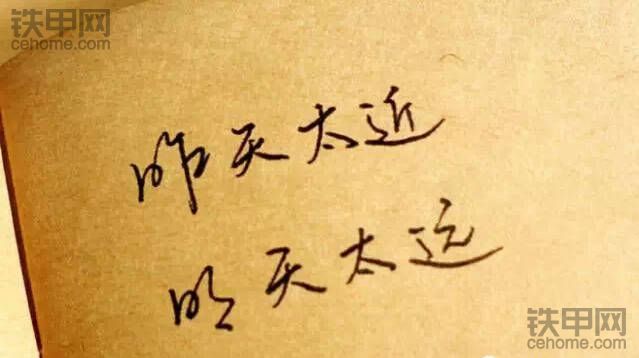 铁甲网
cehome.com
昨天太近
明天太远
铁甲网
cehome.com